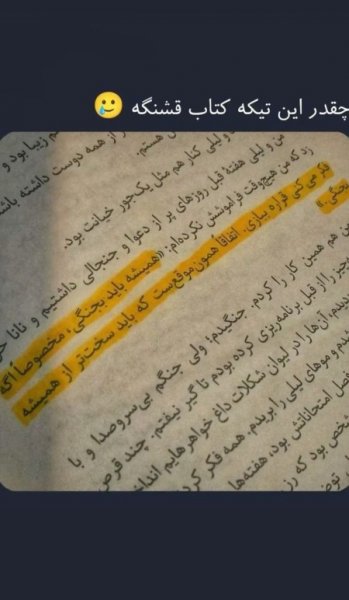 چقدر این تیکه کتاب قشنگه 🥲
زیبا بود و
از همه دوست داشته باشد
هستم.
و لیلی کنار هم مثل یک‌جور خیانت بود.
من و لیلی هفتهٔ قبل روزهای پر از دعوا و جنجالی داشتیم و نانا
زد که من هیچ‌وقت فراموشش نکرده‌ام: «همیشه باید بجنگی، مخصوصا اگه
فکر می‌کنی قراره ببازی. اتفاقاً همون موقع‌ست که باید سخت‌تر از همیشه
بجنگی.»
من هم همین کار را کردم. جنگیدم؛ ولی جنگم بی‌سروصدا و با
چیز را از قبل برنامه‌ریزی کرده بودم تا گیر نیفتم. چند قرص
آن‌ها را در لیوان شکلات داغ خواهرهایم
و موهای لیلی را بریدم. همه فکر
فصل امتحاناتش بود، هفته‌ها
بود که